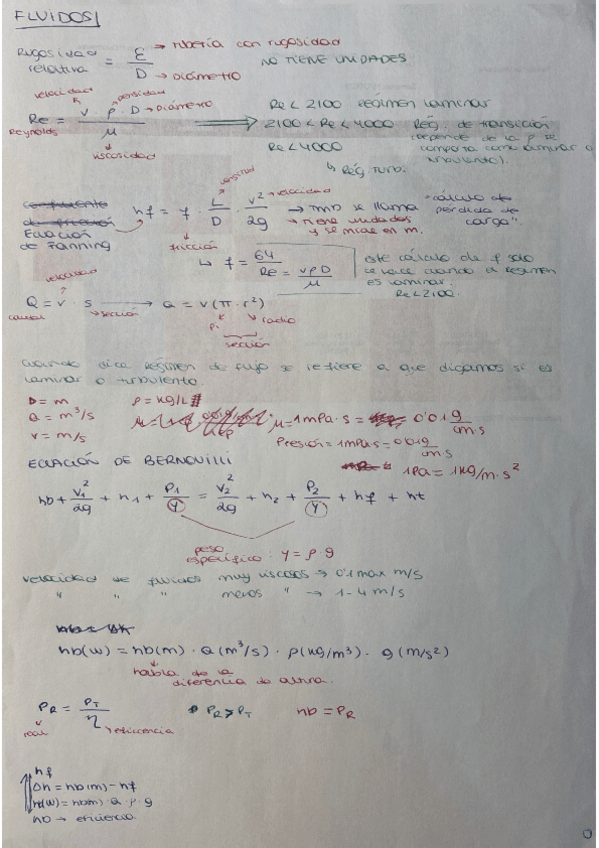 FLUIDOS
Rugosidad relativa = ε / D → tubería con rugosidad → Diámetro NO TIENE UNIDADES
velocidad densidad
Re = v · ρ · D → Diámetro / μ
Reynolds viscosidad
Re < 2100 régimen laminar
2100 < Re < 4000 Rég. de transición
(depende de la ρ se comporta como laminar o turbulento).
Re < 4000
↳ Rég. turb.
Ecuación de Fanning
hf = f · L/D · v²/2g → velocidad
longitud
fricción
→ TMB se llama "cálculo de pérdida de carga".
→ tiene unidades y se mide en m.
↳ f = 64 / Re = vρD / μ
este cálculo de f solo se hace cuando el régimen es laminar.
Re < 2100.
velocidad
Q = v · s → Q = v (π · r²)
caudal → sección Pi radio
sección
Cuando dice régimen de flujo se refiere a que digamos si es
laminar o turbulento.
D = m ρ = kg/L
Q = m³/s μ = 1mPa·s = 0'01 g / cm·s
v = m/s Presión = 1mPa·s = 0'01 g / cm·s
1Pa = 1kg/m·s²
ECUACIÓN DE BERNOUILLI
hb + v₁²/2g + h₁ + P₁/γ = v₂²/2g + h₂ + P₂/γ + hf + ht
peso específico: γ = ρ · g
Velocidad de fluidos muy viscosos → 0'1 max m/s
" " " menos " → 1-4 m/s
hb(w) = hb(m) · Q (m³/s) · ρ(kg/m³) · g (m/s²)
habla de la diferencia de altura.
P_R = P_T / η P_R > P_T hb = P_R
real eficiencia
hf
Δh = hb(m) - hf
hb(w) = hb(m) · Q · ρ · g
hb → eficiencia.